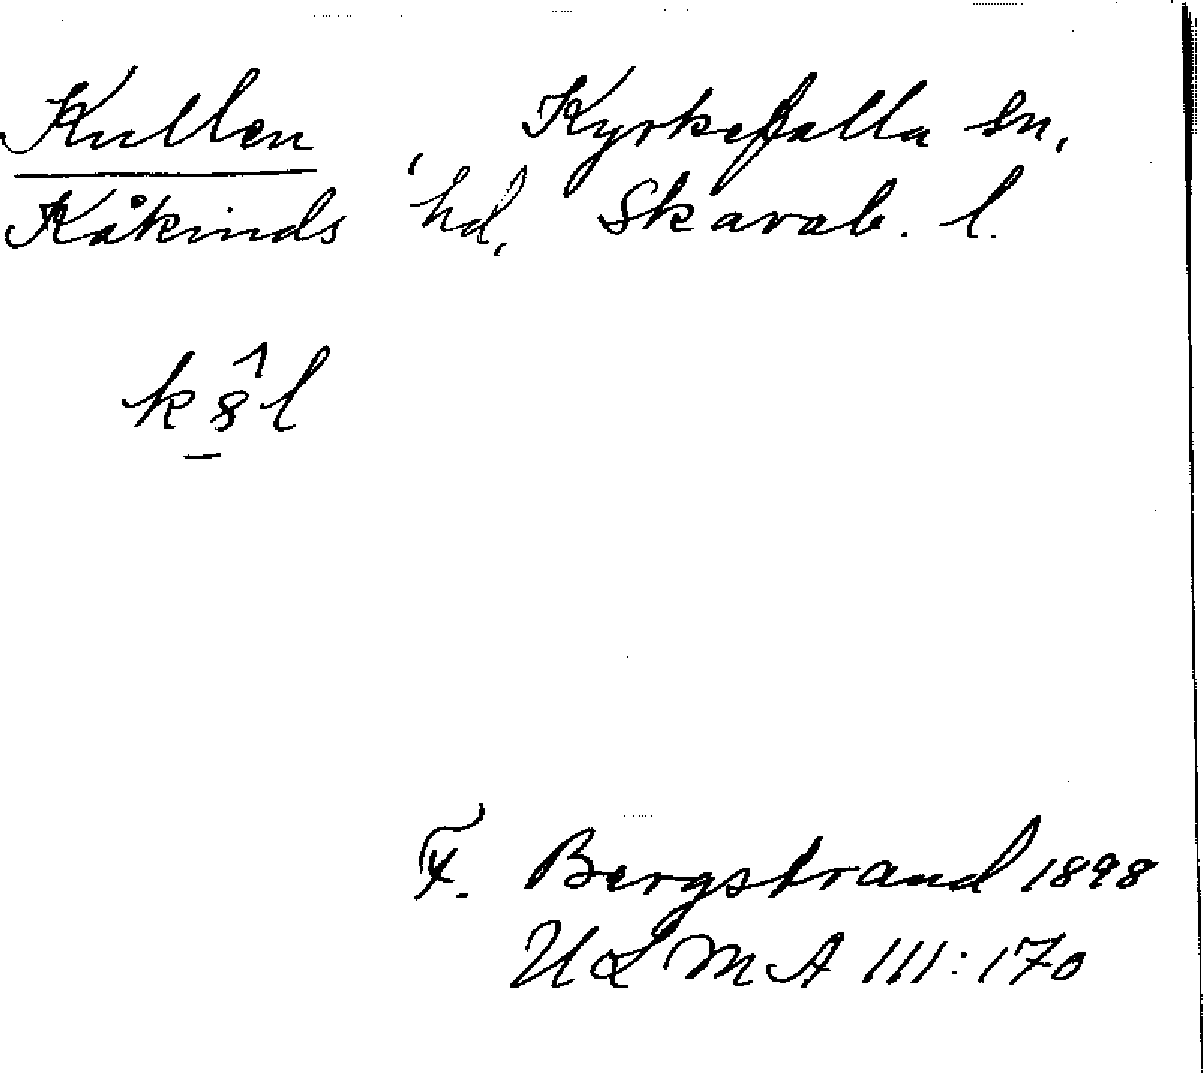 Kullen , Kyrkefalla sn,
Kåkinds hd, Skarab. l.
k8̂l
F. Bergstrand 1898
ULMA 111:170